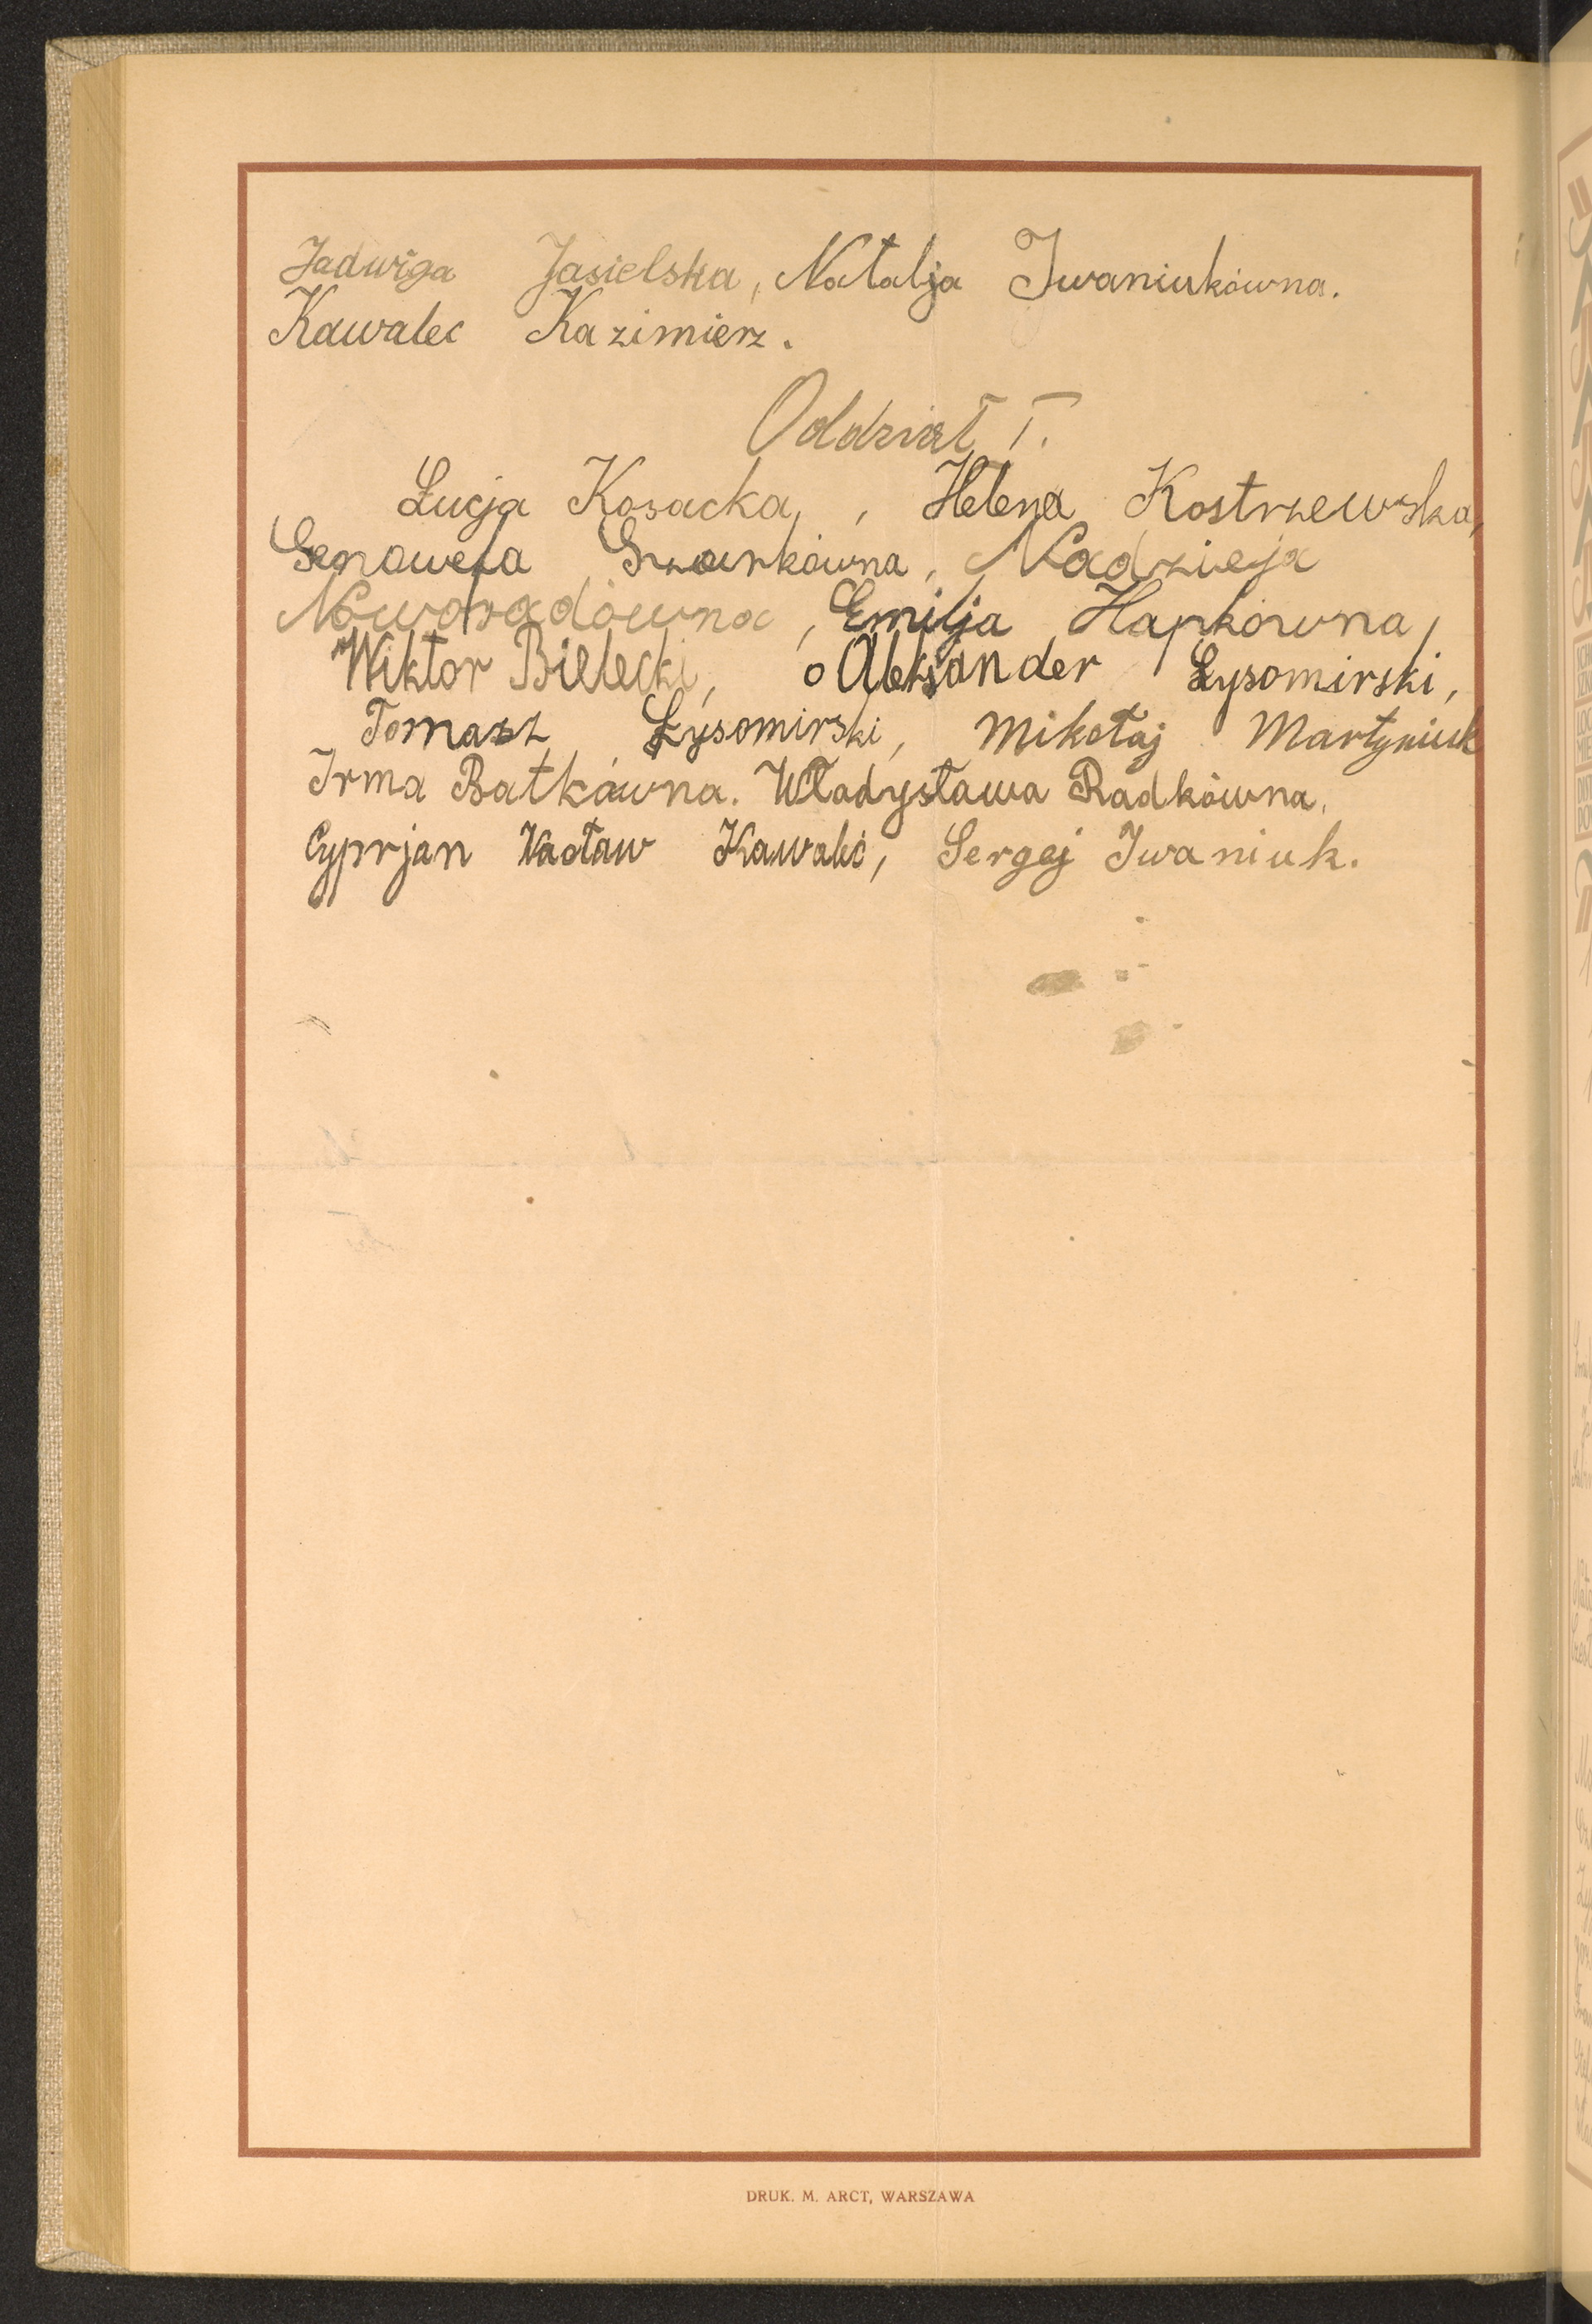 Jadwiga Jasielska, Natalja Iwaniukówna.
Kawalec Kazimierz.
Oddział I.
Łucja Kosacka, , Helena Kostrzewska,
Genowefa Szarkówna, Nadzieja
Nowosadówna, Emilja Hapkówna,
Wiktor Bielecki, Aleksander Łysomirski,
Tomasz Łysomirski, Mikołaj Martyniuk
Irma Bałkówna. Władysława Radkówna.
Cyprjan Wacław Kawalec, Sergej Iwaniuk.
DRUK. M. ARCT, WARSZAWA